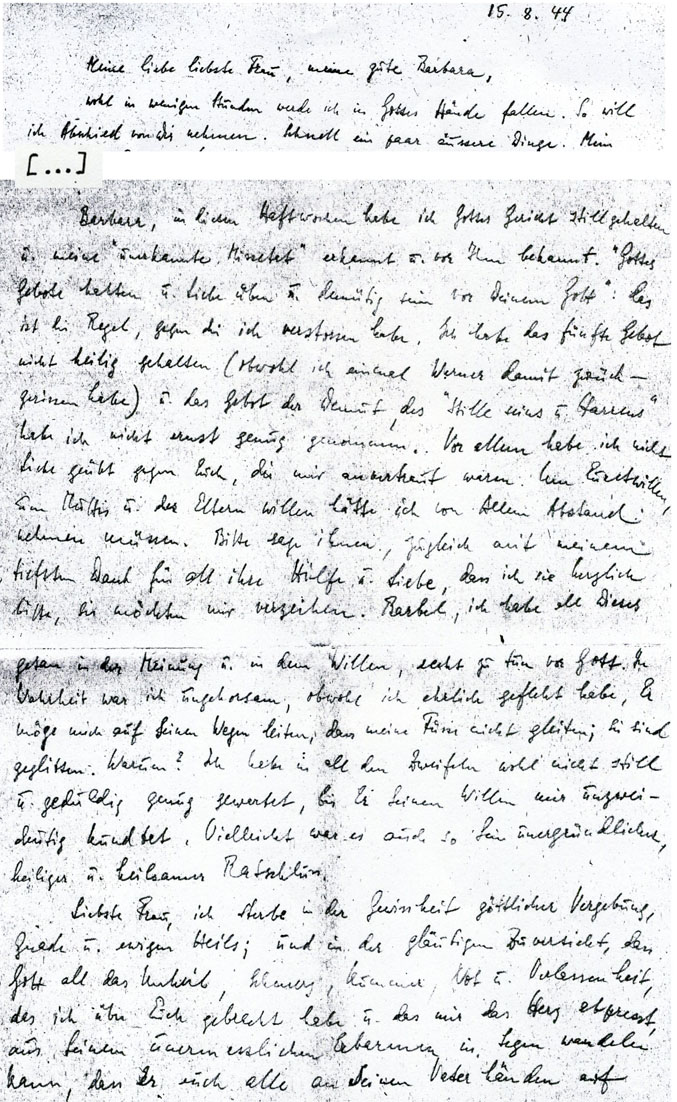 15. 8. 44
Meine liebe liebste Frau, meine gute Barbara,
wohl in wenigen Stunden werde ich in Gottes Hände fallen. So will
ich Abschied von dir nehmen. Schnell ein paar äussere Dinge. Mein
[...]
Barbara, in diesen Haftwochen habe ich Gottes Gericht stillgehalten
u. meine "unerkannte Missetat" erkannt u. vor Ihm bekannt. "Gottes
Gebote halten u. Liebe üben u. demütig sein vor Deinem Gott": das
ist die Regel, gegen die ich verstossen habe. Ich habe das fünfte Gebot
nicht heilig gehalten (obwohl ich einmal Werner damit zurück-
gerissen habe) u. das Gebot der Demut, des "Stille seins u. Harrens"
habe ich nicht ernst genug genommen. Vor allem habe ich nicht
Liebe geübt gegen Euch, die mir anvertraut waren. Um Euretwillen,
um Muttis u. der Eltern willen hätte ich von Allem Abstand
nehmen müssen. Bitte sage ihnen, zugleich mit meinem
tiefsten Dank für all ihre Hülfe u. Liebe, dass ich sie herzlich
bitte, sie möchten mir verzeihen. Barbel, ich habe all Dieses
getan in der Meinung u. in dem Willen, recht zu tun vor Gott. In
Wahrheit war ich ungehorsam, obwohl ich ehrlich gefleht habe, Er
möge mich auf Seinen Wegen leiten, dass meine Füsse nicht gleiten; sie sind
geglitten. Warum? Ich habe in all den Zweifeln wohl nicht still
u. geduldig genug gewartet, bis Er Seinen Willen mir unzwei-
deutig kundtat. Vielleicht war es auch so Sein unergründlicher,
heiliger u. heilsamer Ratschluss.
Liebste Frau, ich sterbe in der Gewissheit göttlicher Vergebung,
Gnade u. ewigen Heils; und in der gläubigen Zuversicht, dass
Gott all das Unheil, Schmerz, Kummer, Not u. Verlassenheit,
das ich über Euch gebracht habe u. das mir das Herz abpresst,
aus Seinem unermesslichen Erbarmen in Segen wandeln
kann, dass Er euch alle an Seinen Vaterhänden auf